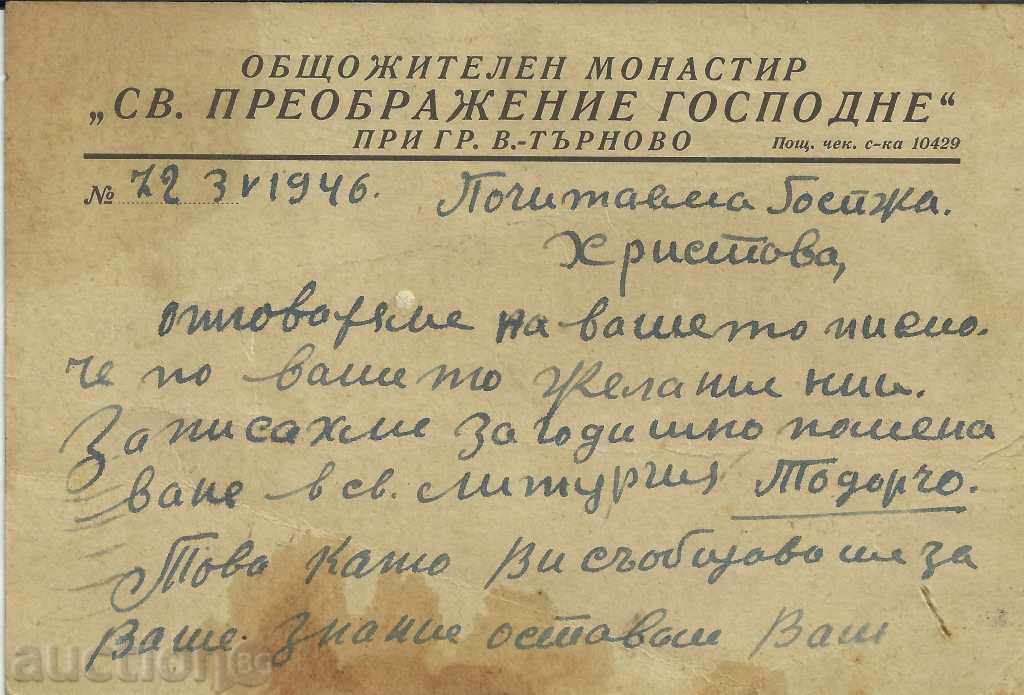 ОБЩОЖИТЕЛЕН МОНАСТИР
„СВ. ПРЕОБРАЖЕНИЕ ГОСПОДНЕ“
ПРИ ГР. В.-ТЪРНОВО
Пощ. чек. с-ка 10429
№ 72 3 V 1946. Почитаема Госпжа.
Христова,
отговаряме на вашето писмо.
че по вашето желание ний.
Записахме за годишно помена
ване в св. литургия Тодорчо.
Това като Ви съобщаваме за
Ваше знание оставам Ваш
auction.bg